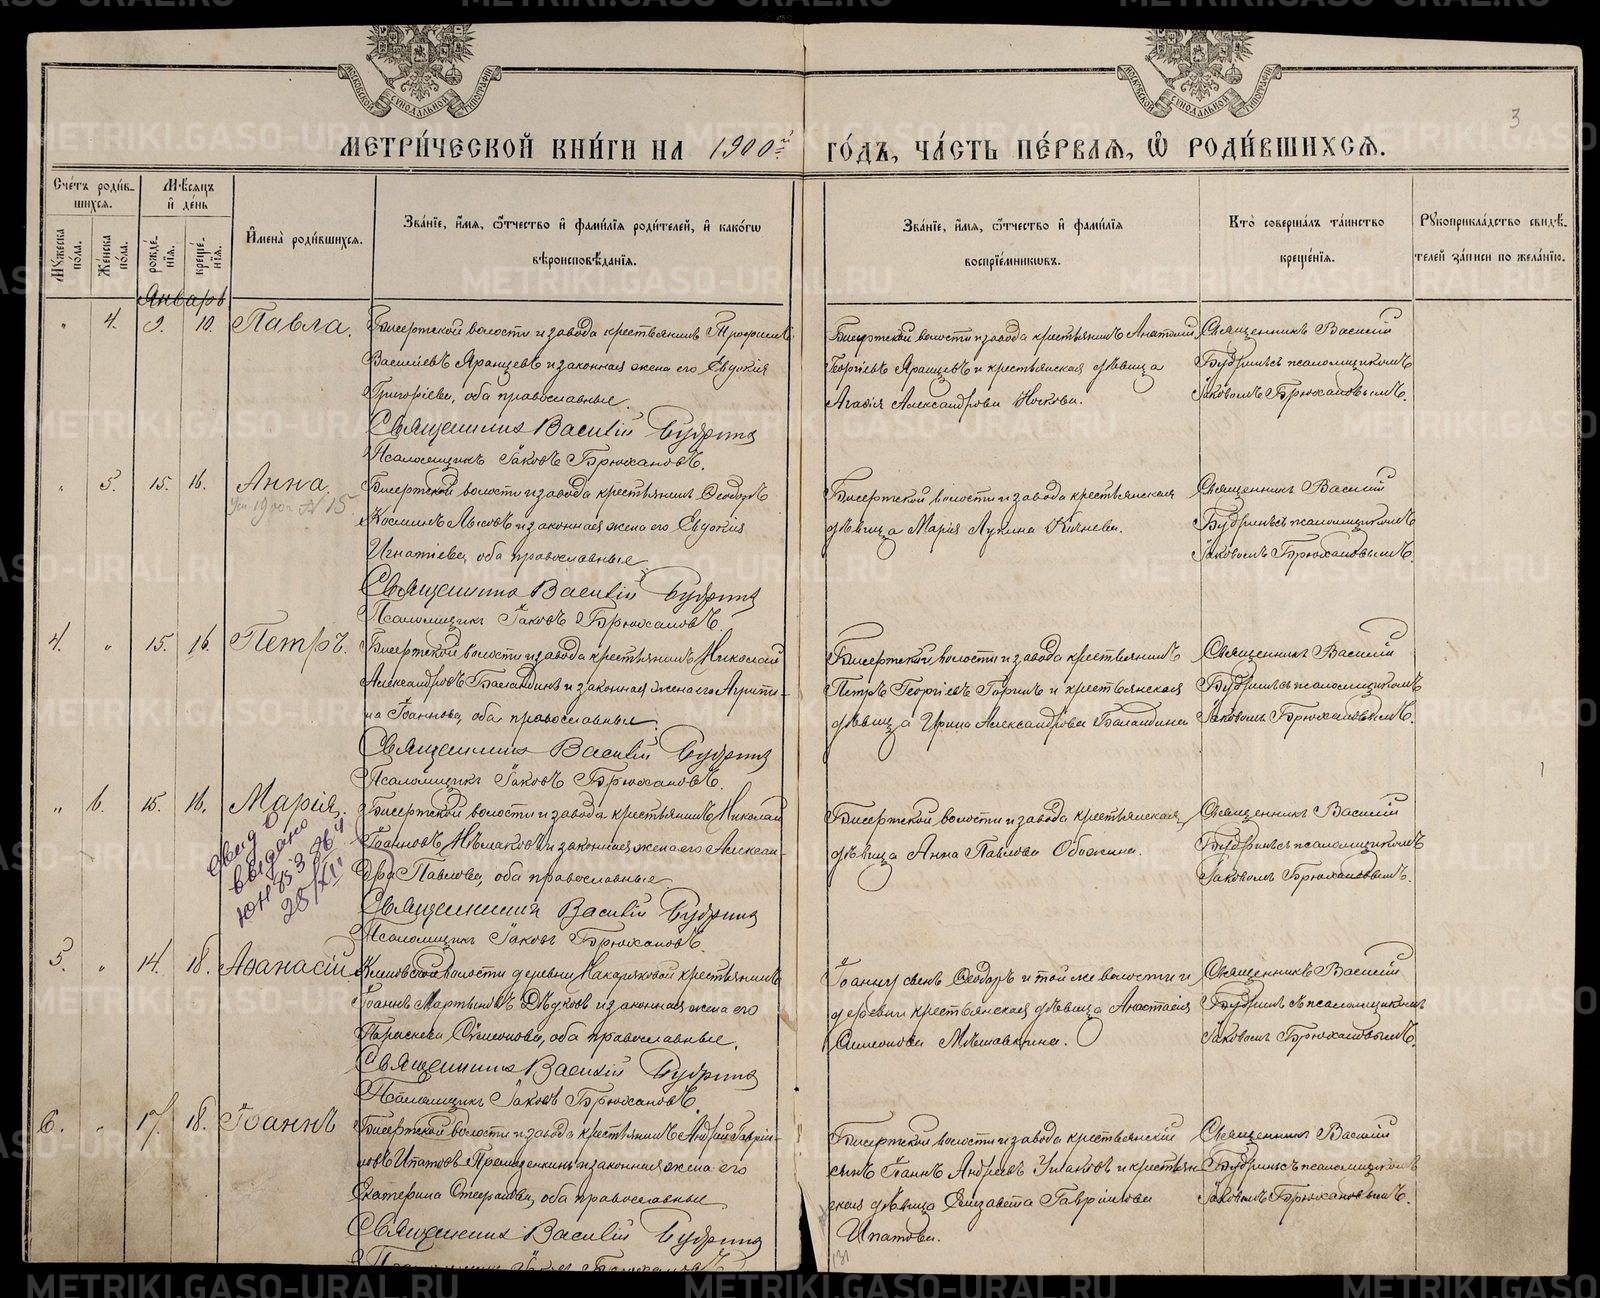 МОСКОВСКОЙ СѴНОДАЛЬНОЙ ТИПОГРАФІИ
МОСКОВСКОЙ СѴНОДАЛЬНОЙ ТИПОГРАФІИ
3
МЕТРИ́ЧЕСКОЙ КНИ́ГИ НА 1900й ГО́ДЪ, ЧА́СТЬ ПЕ́РВАѦ, Ѿ РОДИ́ВШИХСѦ.
Сче́тъ роди́в-
шихся.
Мꙋ́жеска по́ла.
Же́нска по́ла.
Мѣ́сяцъ
и҆ де́нь
рожде́-
нїя.
креще́-
нїя.
И҆мена̀ роди́вшихся.
Зва́нїе, и҆́мя, ѻ҆́тчество и҆ фами́лїя роди́телей, и҆ како́гѡ
вѣроисповѣ́данїя.
Зва́нїе, и҆́мя, ѻ҆́тчество и҆ фами́лїя
воспрїе́мникѡвъ.
Кто̀ соверша́лъ та́инство
креще́нїя.
Рꙋкоприкла́дство свидѣ́-
телей за́писи по жела́нїю.
Январь
" 4. 9. 10. Павла.
Бисертской волости и завода крестьянинъ Трофимъ
Васильевъ Яранцевъ и законная жена его Евдокія
Григоріева, оба православные.
Священникъ Василій Будринъ
Псаломщикъ Іаковъ Брюхановъ.
Бисертской волости и завода крестьянинъ Анатолій
Георгіевъ Яранцевъ и крестьянская дѣвица
Агафія Александрова Носкова.
Священникъ Василій
Будринъ съ псаломщикомъ
Іаковомъ Брюхановымъ.
" 5. 15. 16. Анна.
Бисертской волости и завода крестьянинъ Ѳеодоръ
Косминъ Лысовъ и законная жена его Евдокія
Игнатіева, оба православные
Священникъ Василій Будринъ
Псаломщикъ Іаковъ Брюхановъ
Бисертской волости и завода крестьянская
дѣвица Марія Лукина Кичнева.
Священникъ Василій
Будринъ съ псаломщикомъ
Іаковомъ Брюхановымъ.
4. " 15. 16. Петръ.
Бисертской волости и завода крестьянинъ Николай
Александровъ Баландинъ и законная жена его Агрипи-
на Іоаннова, оба православные.
Священникъ Василій Будринъ
Псаломщикъ Іаковъ Брюхановъ.
Бисертской волости и завода крестьянинъ
Петръ Георгіевъ и крестьянская
дѣвица Ирина Александрова Баландина
Священникъ Василій
Будринъ съ псаломщикомъ
Іаковомъ Брюхановымъ.
" 6. 15. 16. Марія.
выдано
ЮН
28/XI
Бисертской волости и завода крестьянинъ Николай
Іоанновъ и законная жена его Алексан-
дра Павлова, оба православные
Священникъ Василій Будринъ
Псаломщикъ Іаковъ Брюхановъ.
Бисертской волости и завода крестьянская
дѣвица Анна Павлова
Священникъ Василій
Будринъ съ псаломщикомъ
Іаковомъ Брюхановымъ.
5. " 14. 18. Аѳанасій
Кленовской волости деревни Макаряковой крестьянинъ
Іоаннъ Мартыновъ Дѣдковъ и законная жена его
Параскева Симеонова, оба православные.
Священникъ Василій Будринъ
Псаломщикъ Іаковъ Брюхановъ.
Іоанну сынъ Ѳеодоръ и той же волости и
деревни крестьянская дѣвица Анастасія
Симеонова
Священникъ Василій
Будринъ съ псаломщикомъ
Іаковомъ Брюхановымъ.
6. " 17. 18. Іоаннъ
Бисертской волости и завода крестьянинъ Андрей Гаврі-
ловъ Ипатовъ и законная жена его
Екатерина Стефанова, оба православные
Священникъ Василій Будринъ
Псаломщикъ Іаковъ Брюхановъ
Бисертской волости и завода крестьянскій
сынъ Іоаннъ Андреевъ Ушаковъ и крестьян-
ская дѣвица Елизавета Гавріилова
Ипатова.
Священникъ Василій
Будринъ съ псаломщикомъ
Іаковомъ Брюхановымъ.
METRIKI.GASO-URAL.RU